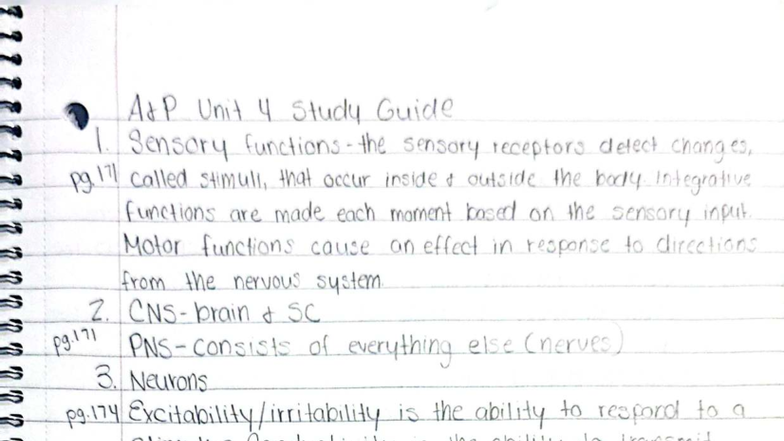 A&P Unit 4 Study Guide
1. Sensory functions - the sensory receptors detect changes,
pg. 171 called stimuli, that occur inside & outside the body. Integrative
functions are made each moment based on the sensory input.
Motor functions cause an effect in response to directions
from the nervous system.
2. CNS - brain & SC
pg. 171 PNS - consists of everything else (nerves)
3. Neurons
pg. 174 Excitability/irritability is the ability to respond to a
is the ability to transmit